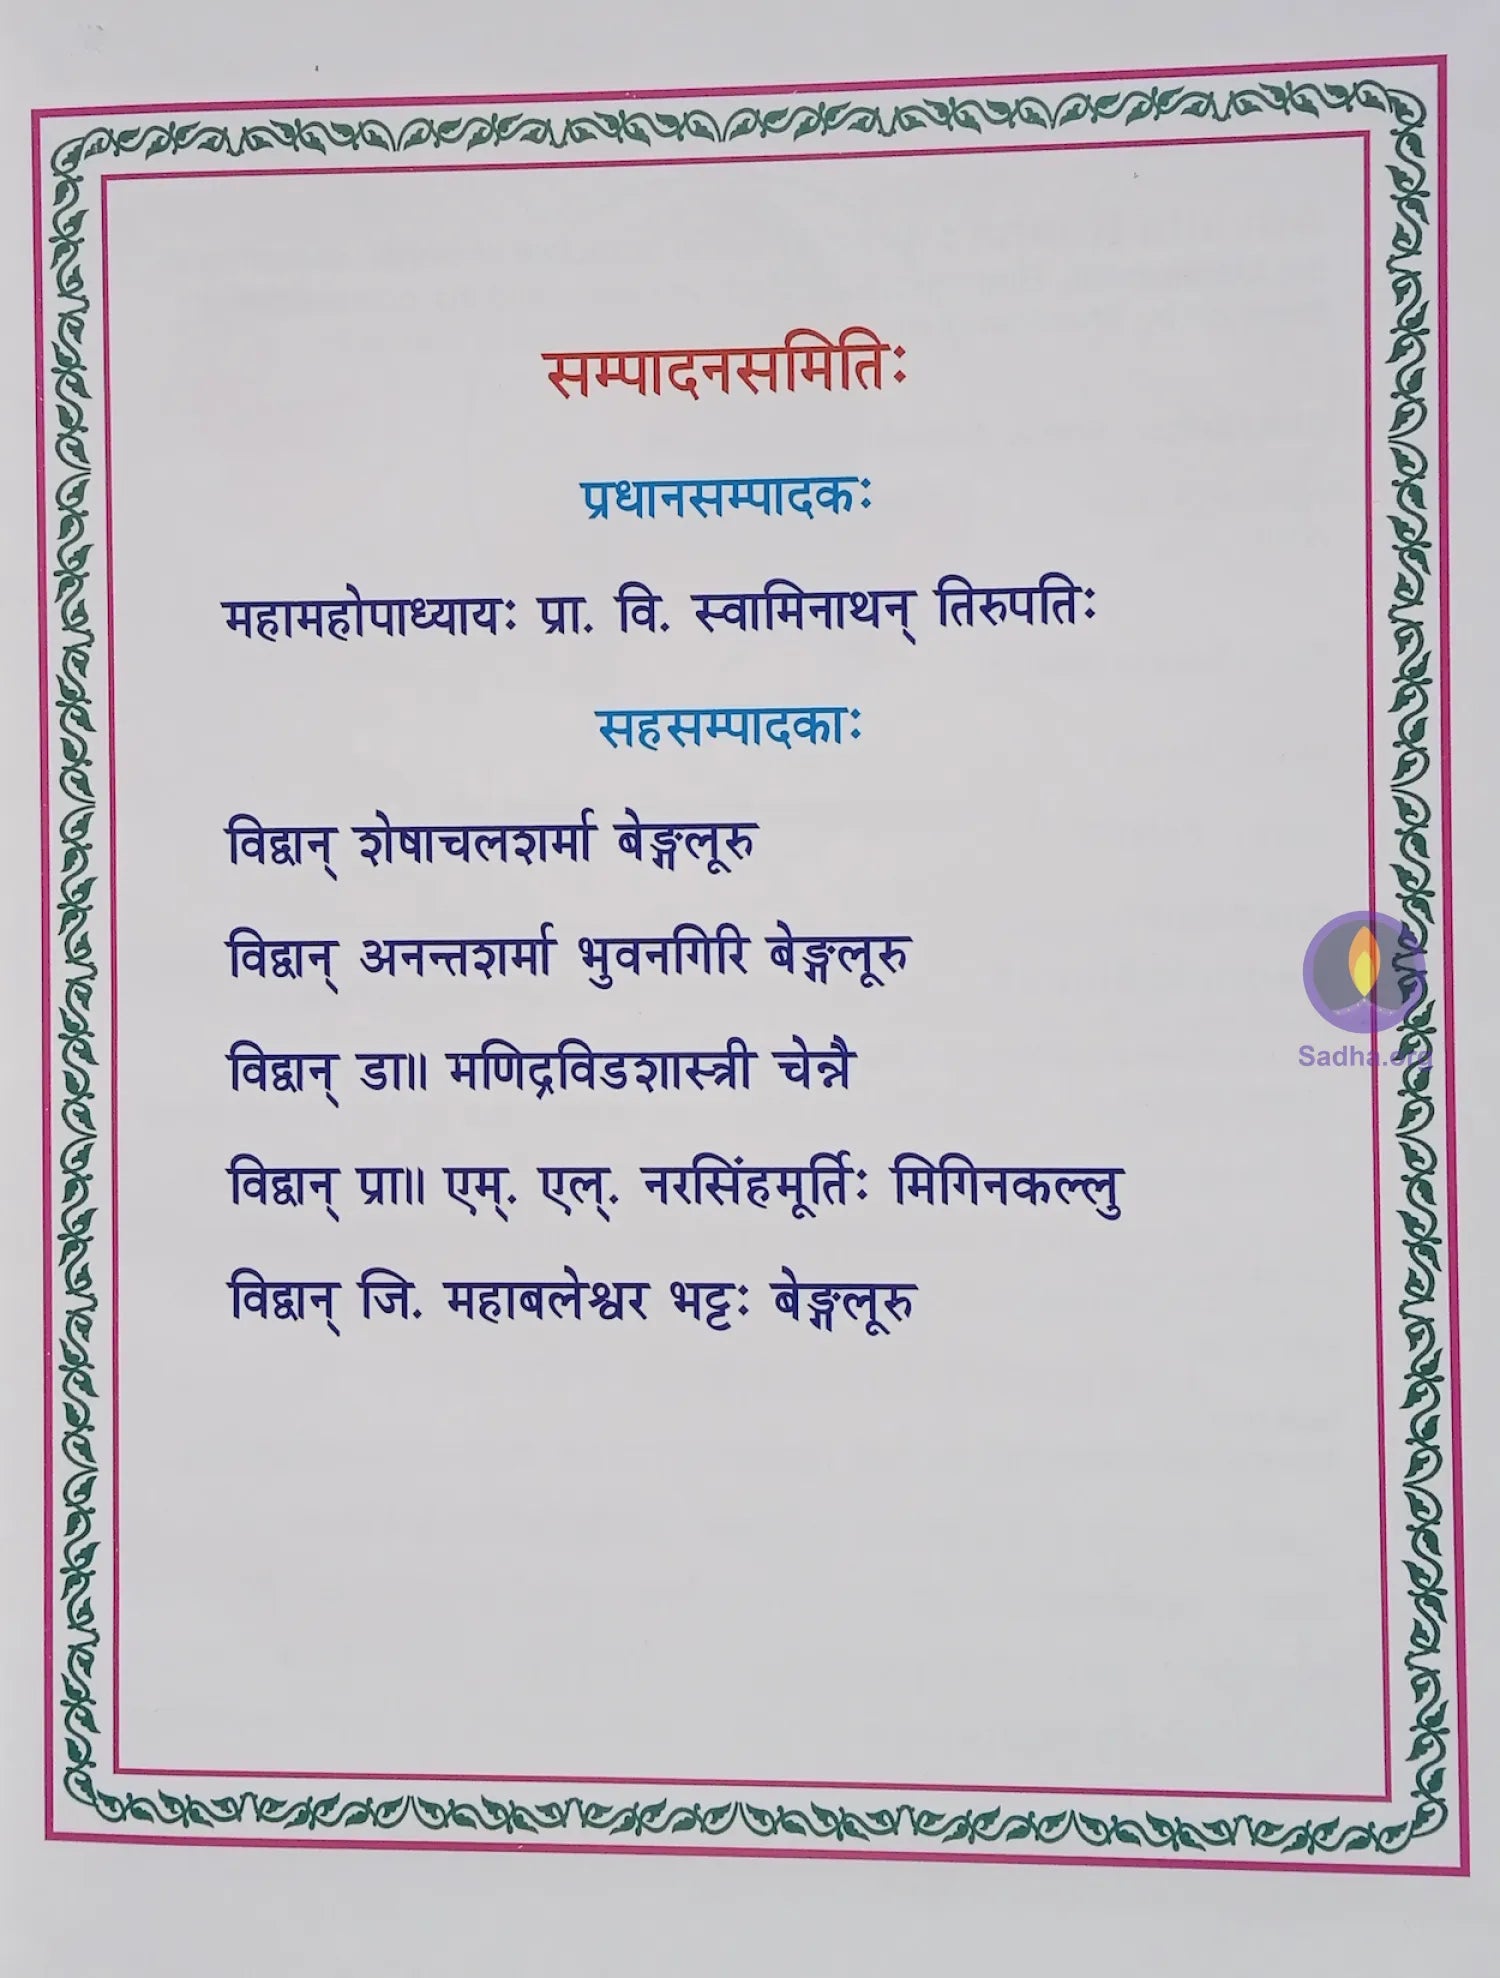 सम्पादनसमितिः
प्रधानसम्पादकः
महामहोपाध्यायः प्रा. वि. स्वामिनाथन् तिरुपतिः
सहसम्पादकाः
विद्वान् शेषाचलशर्मा बेङ्गलूरु
विद्वान् अनन्तशर्मा भुवनगिरि बेङ्गलूरु
विद्वान् डा॥ मणिद्रविडशास्त्री चेन्नै
विद्वान् प्रा॥ एम्. एल्. नरसिंहमूर्तिः मिगिनकल्लु
विद्वान् जि. महाबलेश्वर भट्टः बेङ्गलूरु
Sadha.org